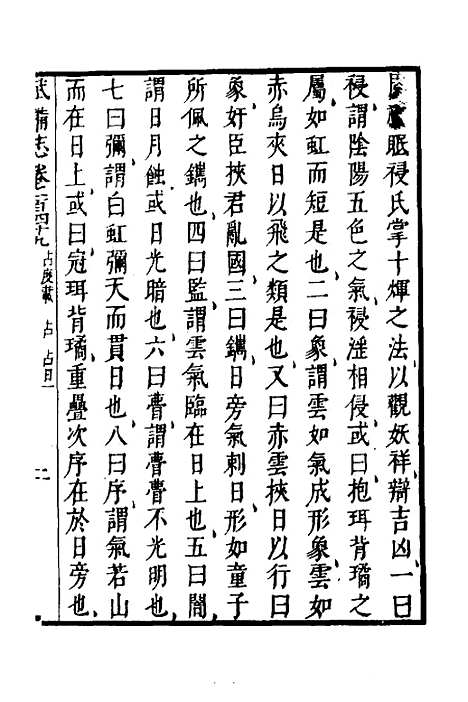 周禮眡祲氏掌十煇之法以觀妖祥辯吉凶一曰
祲謂陰陽五色之氣祲淫相侵或曰抱珥背璚之
屬如虹而短是也二曰象謂雲如氣成形象雲如
赤烏夾日以飛之類是也又曰赤雲挾日以行曰
象奸臣挾君亂國三曰鑴日旁氣刺日形如童子
所佩之鑴也四曰監謂雲氣臨在日上也五曰闇
謂日月蝕或日光暗也六曰瞢謂瞢瞢不光明也
七曰彌謂白虹彌天而貫日也八曰序謂氣若山
而在日上或曰冠珥背璚重疊次序在於日旁也
武備志卷一百四十九 占度載 占 占日一 二